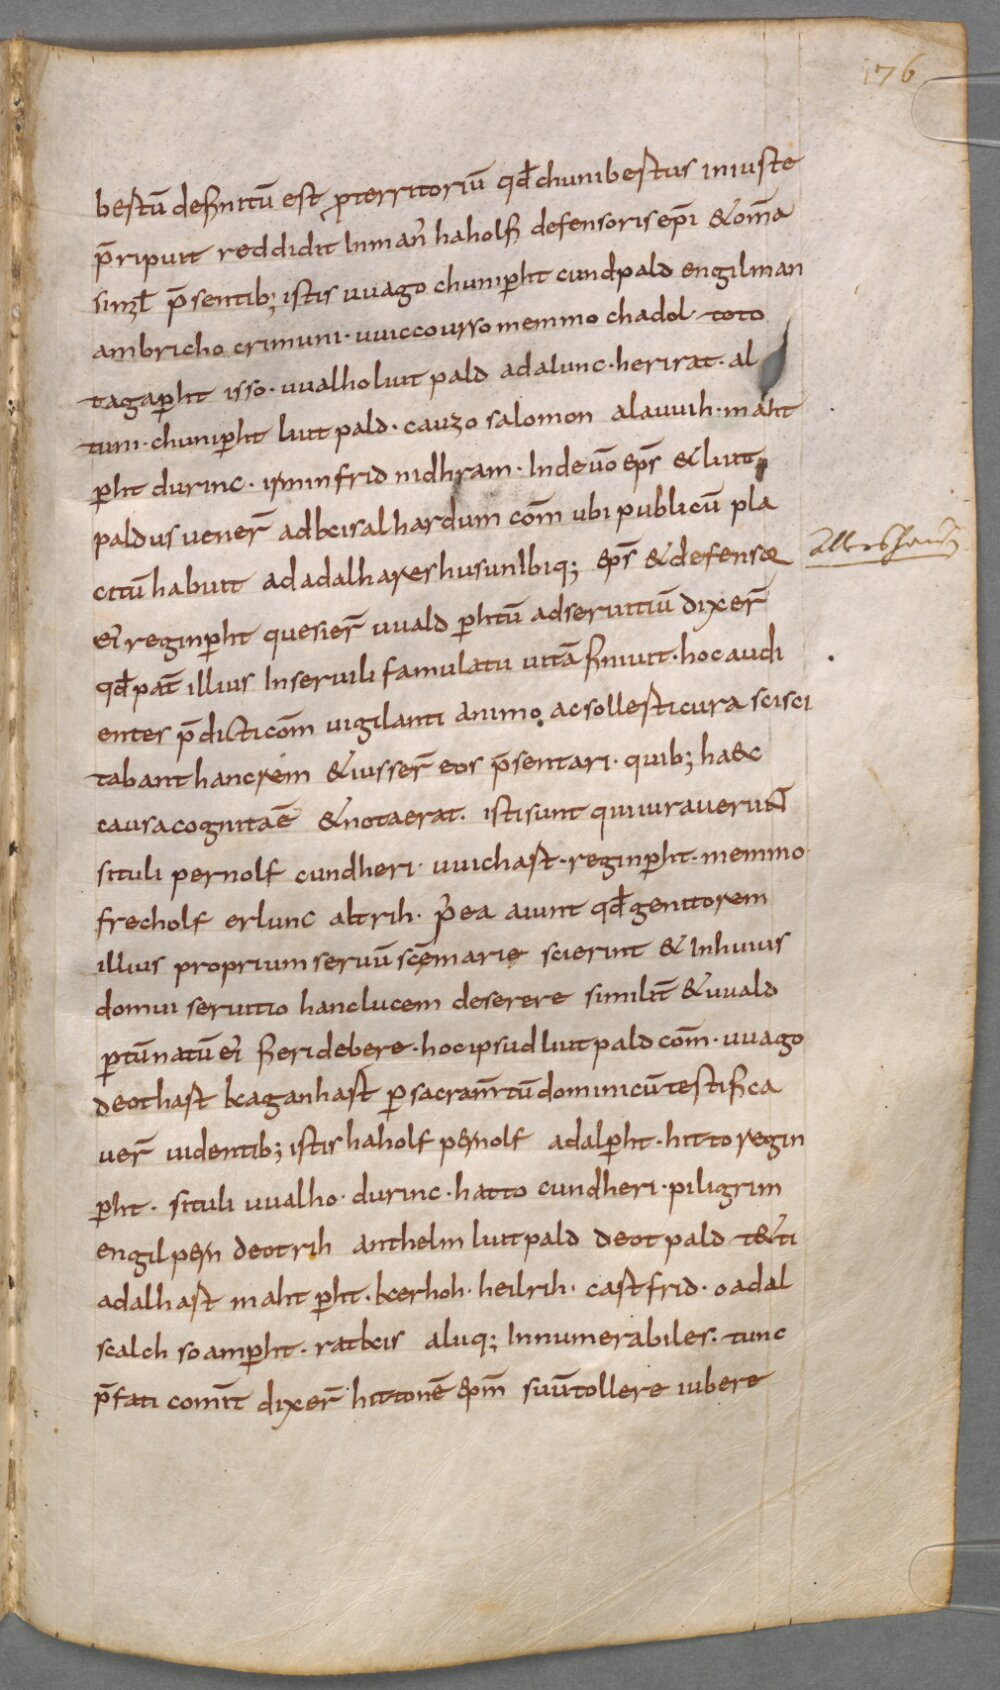 176
bestū definitū est p̱territoriū qđ chunibestus iniuste
p̄ripuit reddidit In man̄ haholfi defensoris ep̄i & om̄a
simł p̄sentib; istis uuago chunip̱ht cundpald engilman
ambricho crimuni · uuicco urso memmo chadol · toto
tagap̱ht isso · uualho liut pald adalunc · herirat · al
tuni · chunip̱ht liut pald · cauzo salomon alauuih · maht
p̱ht durinc · irminfrid nidhram · Inde uō ep̄s & liut
paldus uener̄ ad keisalhardum com̄ ubi publicū pla
citū habuit ad adalhareshusun Ibiq; ep̄s & defensor
ei reginp̱ht quesier̄ uuald p̱htū ad seruitiū dixer̄
qđ pat̄ illius In seruili famulatu uitā finiuit · hoc audi
enter p̄dicti com̄ uigilanti animo ac sollesti cura scisci
tabant hanc rem & iusser̄ eos p̄sentari · quib; haec
causa cognita ē & nota erat · isti sunt qui iurauerunt
situli pernolf cundheri · uuichast · reginp̱ht · memmo
frecholf erlunc altrih · p̄ea aiunt qđ genitorem
illius proprium seruū scē marię scierint & In huius
domui seruitio hanc lucem deserere similit̄ & uuald
p̱tū natū ei fieri debere · hoc ipsud liutpald com̄ · uuago
deothast keaganhast p̱ sacram̄tū dominicū testifica
uer̄ uidentib; istis haholf pernolf adalp̱ht · hitto regin
p̱ht · situli uualho · durinc · hatto cundheri · piligrim
engilpern deotrih anthelm liutpald deotpald t&ti
adalhast maht p̱ht · kerhoh · heilrih · castfrid · o adal
scalch so amp̱ht · ratkis aluq; Innumerabiles · tunc
p̄fati comit̄ dixer̄ hittonē ep̄m suū tollere iubere